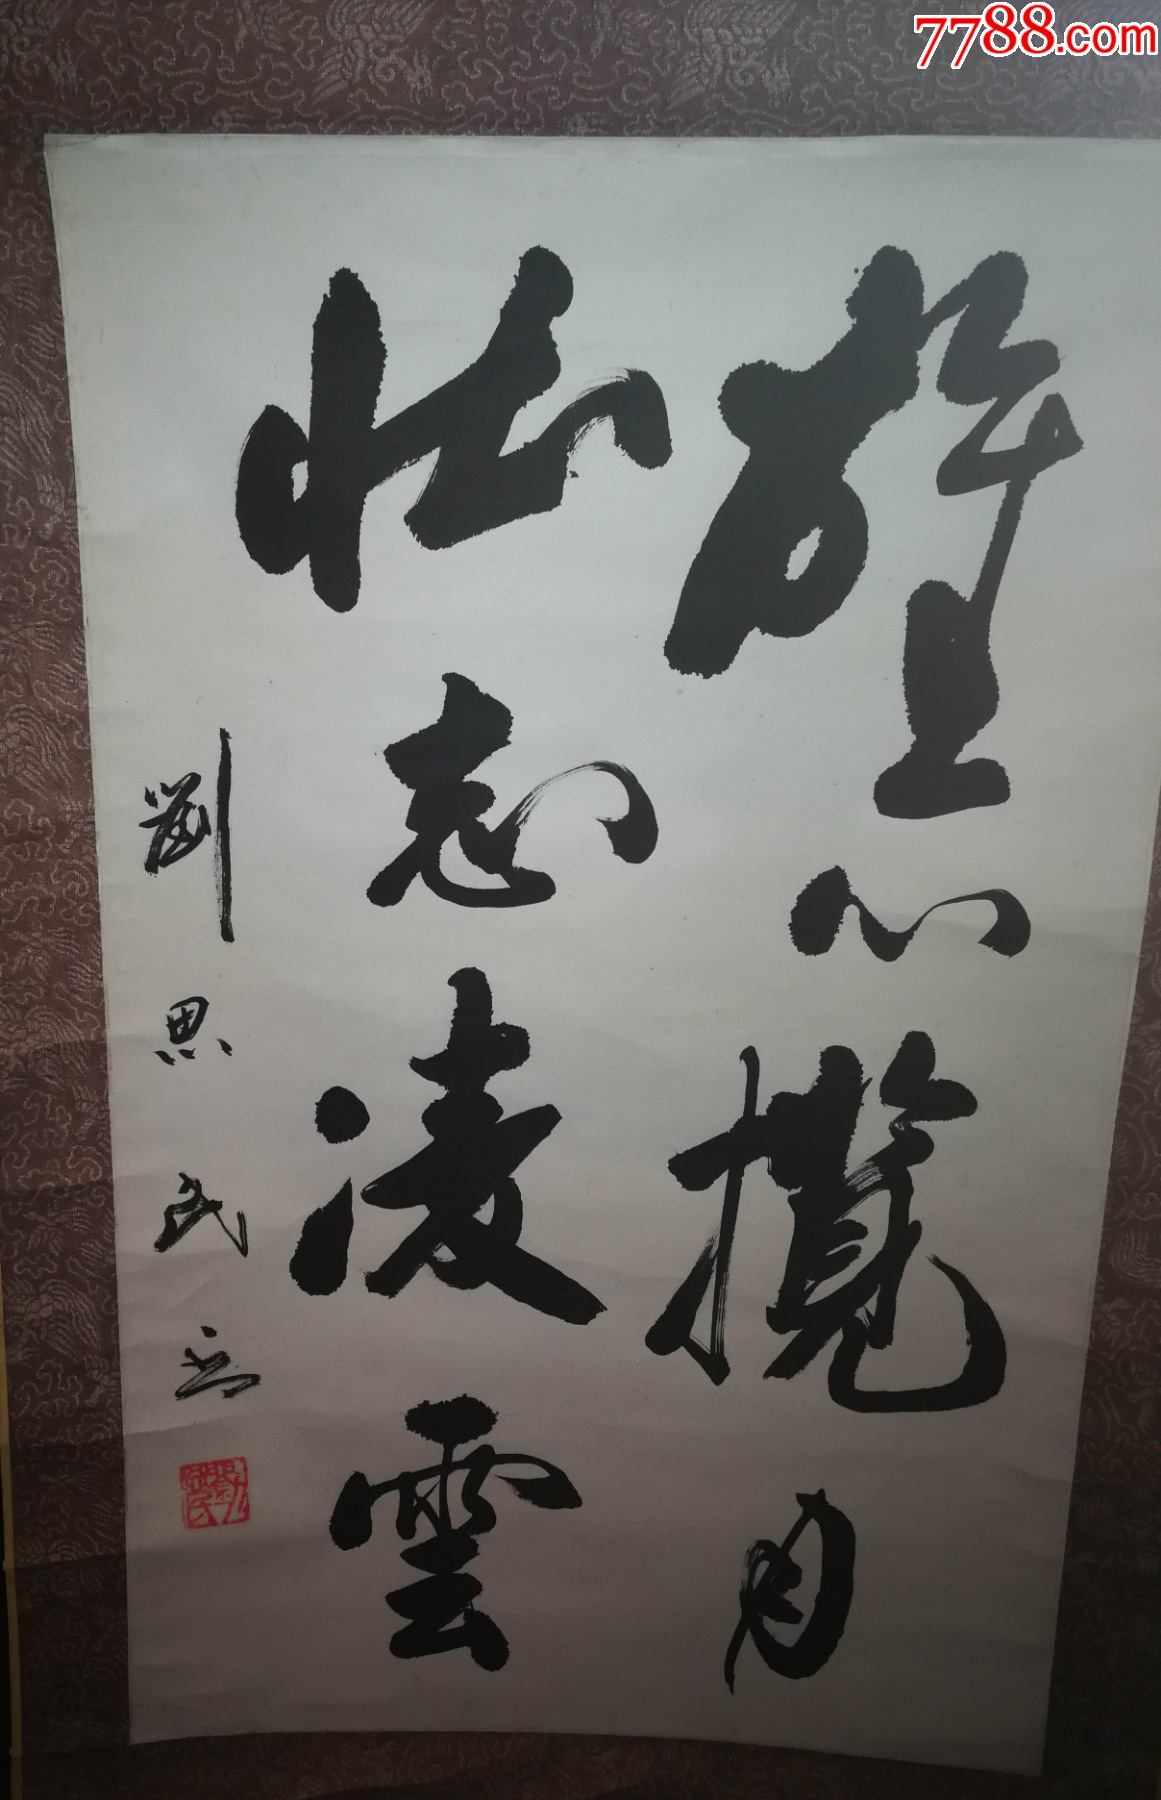 7788.com
雄心攬月
壯志凌雲
劉思民书